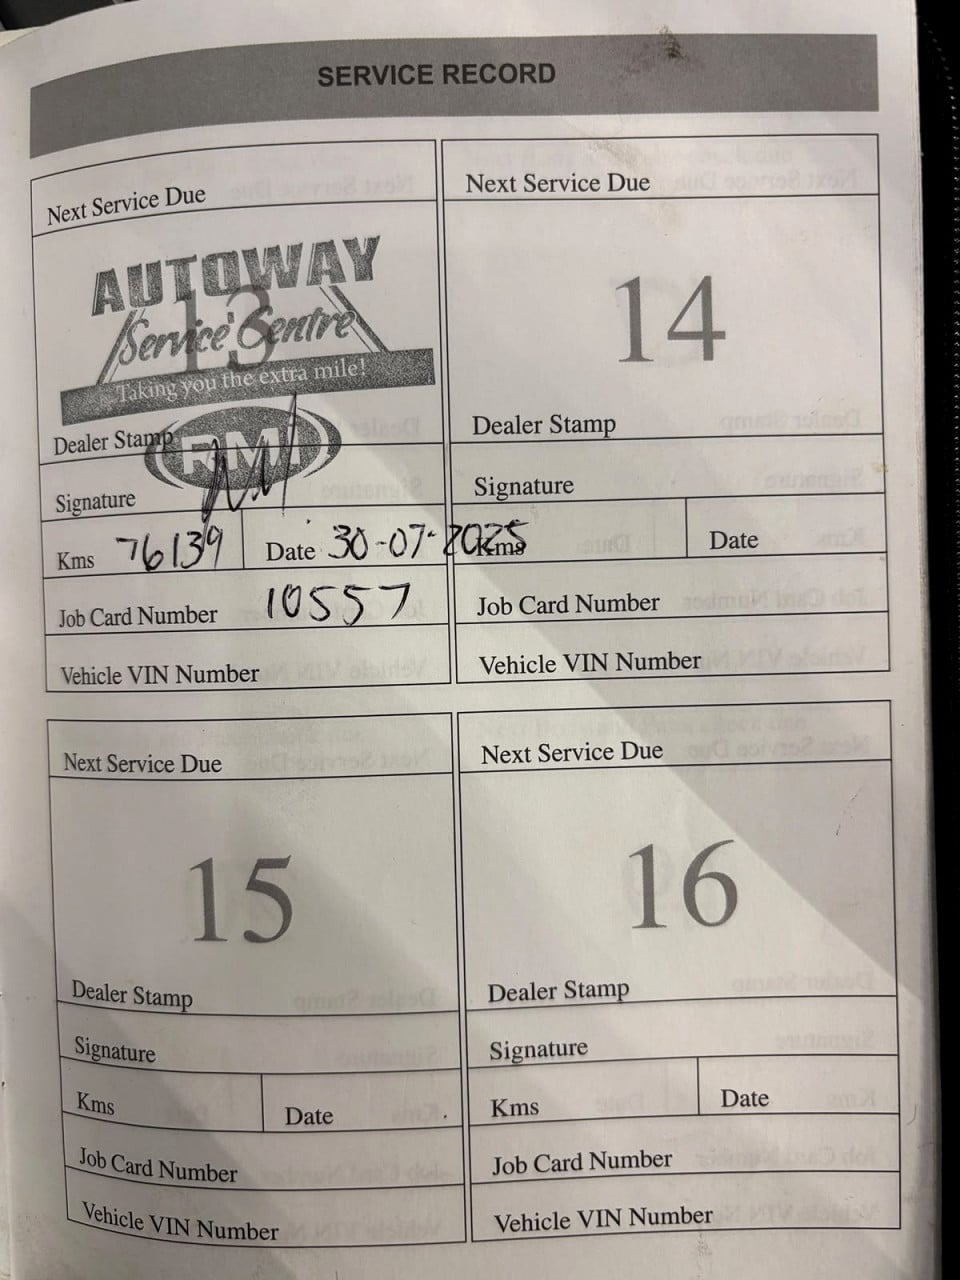 SERVICE RECORD
Next Service Due
AUTOWAY
Service Centre
13
Taking you the extra mile!
Dealer Stamp
RMI
Signature
Kms 76139 Date 30-07-2025
Job Card Number 10557
Vehicle VIN Number
Next Service Due
14
Dealer Stamp
Signature
Kms Date
Job Card Number
Vehicle VIN Number
Next Service Due
15
Dealer Stamp
Signature
Kms Date
Job Card Number
Vehicle VIN Number
Next Service Due
16
Dealer Stamp
Signature
Kms Date
Job Card Number
Vehicle VIN Number